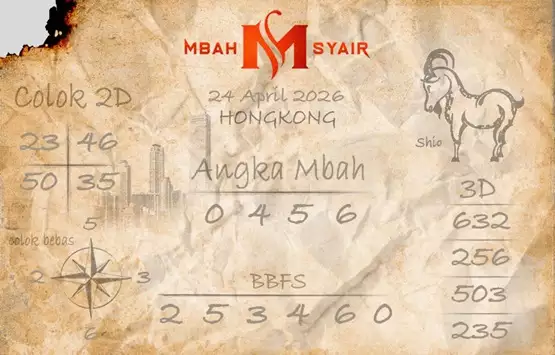 MBAH M SYAIR
24 April 2026
HONGKONG
Colok 2D
23 46
50 35
Angka Mbah
0 4 5 6
Shio
3D
632
256
503
235
colok bebas
5
2 3
6
BBFS
2 5 3 4 6 0